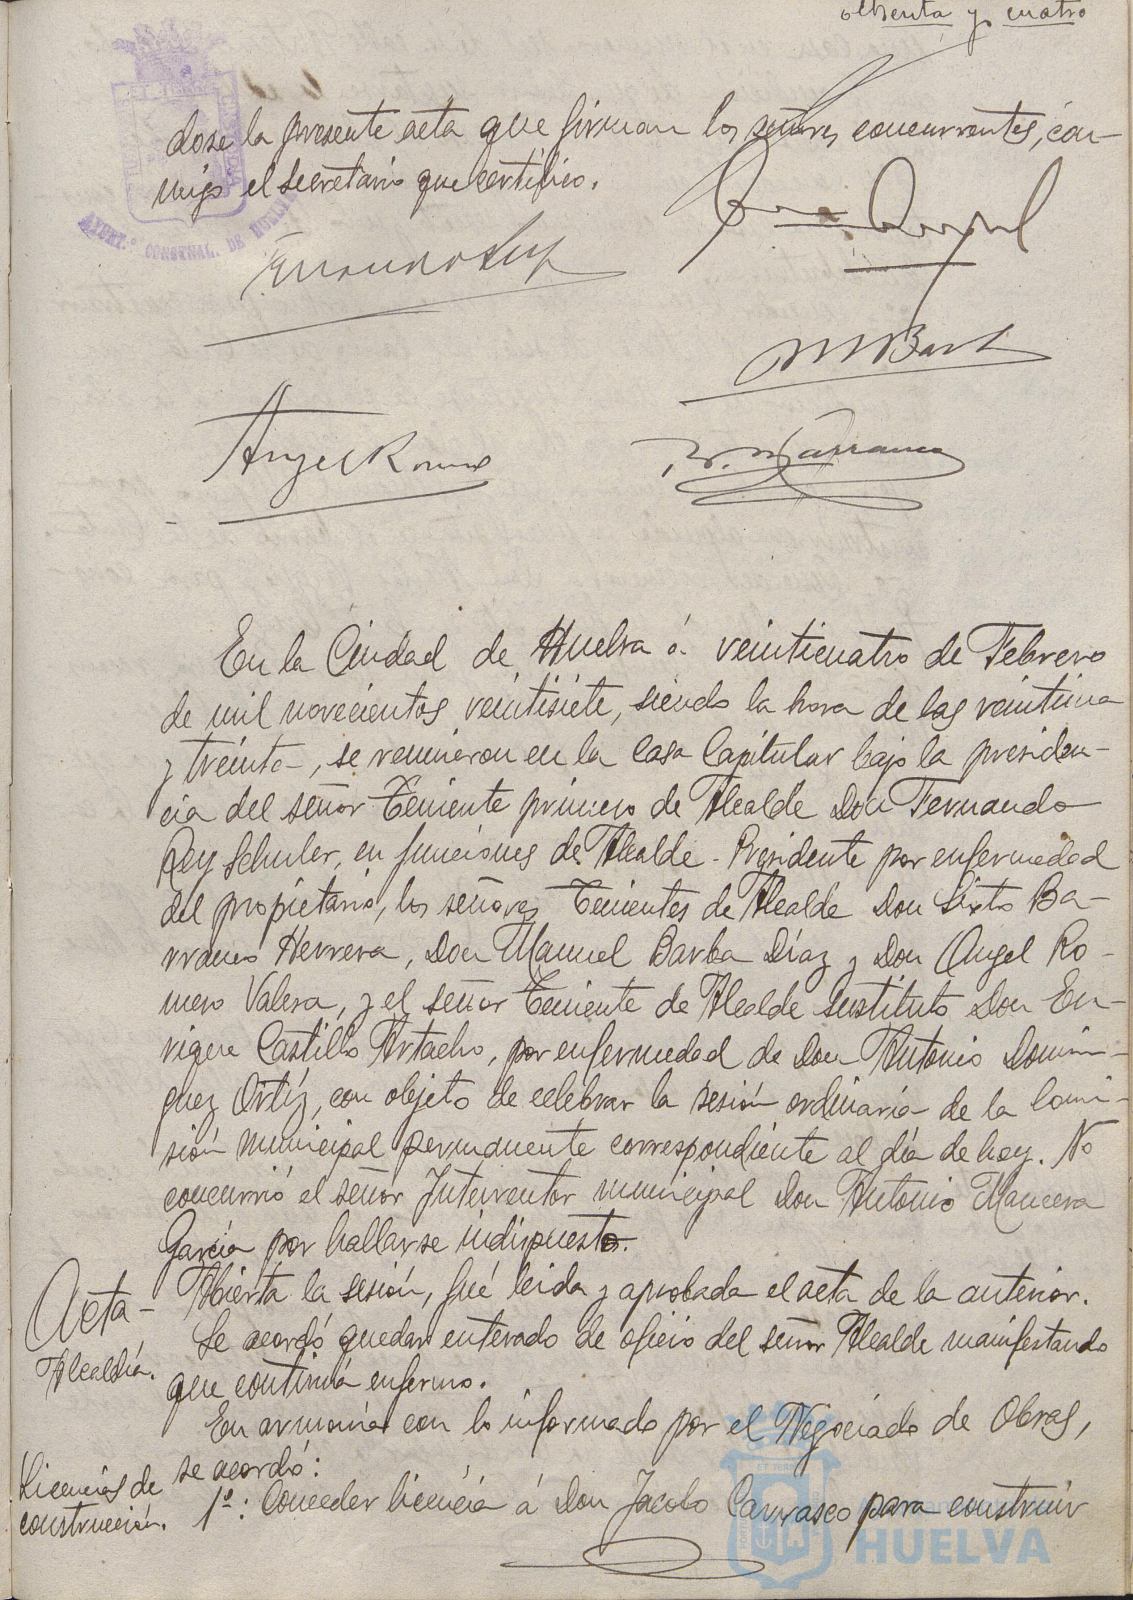 ochenta y cuatro
dose la presente acta que firman los señores concurrentes, con-
migo el secretario que certifico.
AYUNT.º CONSTNAL. DE HUELVA
M Barba
Angel Romero
S. Barranco
En la Ciudad de Huelva á veinticuatro de Febrero
de mil novecientos veintisiete, siendo la hora de las veintiuna
y treinta, se reunieron en la Casa Capitular bajo la presiden-
cia del señor Teniente primero de Alcalde Don Fernando
Rey Schuler, en funciones de Alcalde-Presidente por enfermedad
del propietario, los señores Tenientes de Alcalde Don Sixto Ba-
rranco Herrera, Don Manuel Barba Díaz y Don Angel Ro-
mero Valera, y el señor Teniente de Alcalde sustituto Don En-
rique Castillo Artacho, por enfermedad de Don Antonio Domin-
guez Ortíz, con objeto de celebrar la sesión ordinaria de la Comi-
sión municipal permanente correspondiente al día de hoy. No
concurrió el señor Interventor municipal Don Antonio Mancera
García por hallarse indispuesto.
Acta-
Abierta la sesión, fué leida y aprobada el acta de la anterior.
Alcaldía.
Se acordó quedar enterado de oficio del señor Alcalde manifestando
que continúa enfermo.
En armonía con lo informado por el Negociado de Obras,
se acordó:
Licencias de
construcción.
1º: Conceder licencia á Don Jacobo Carrasco para construir
HUELVA